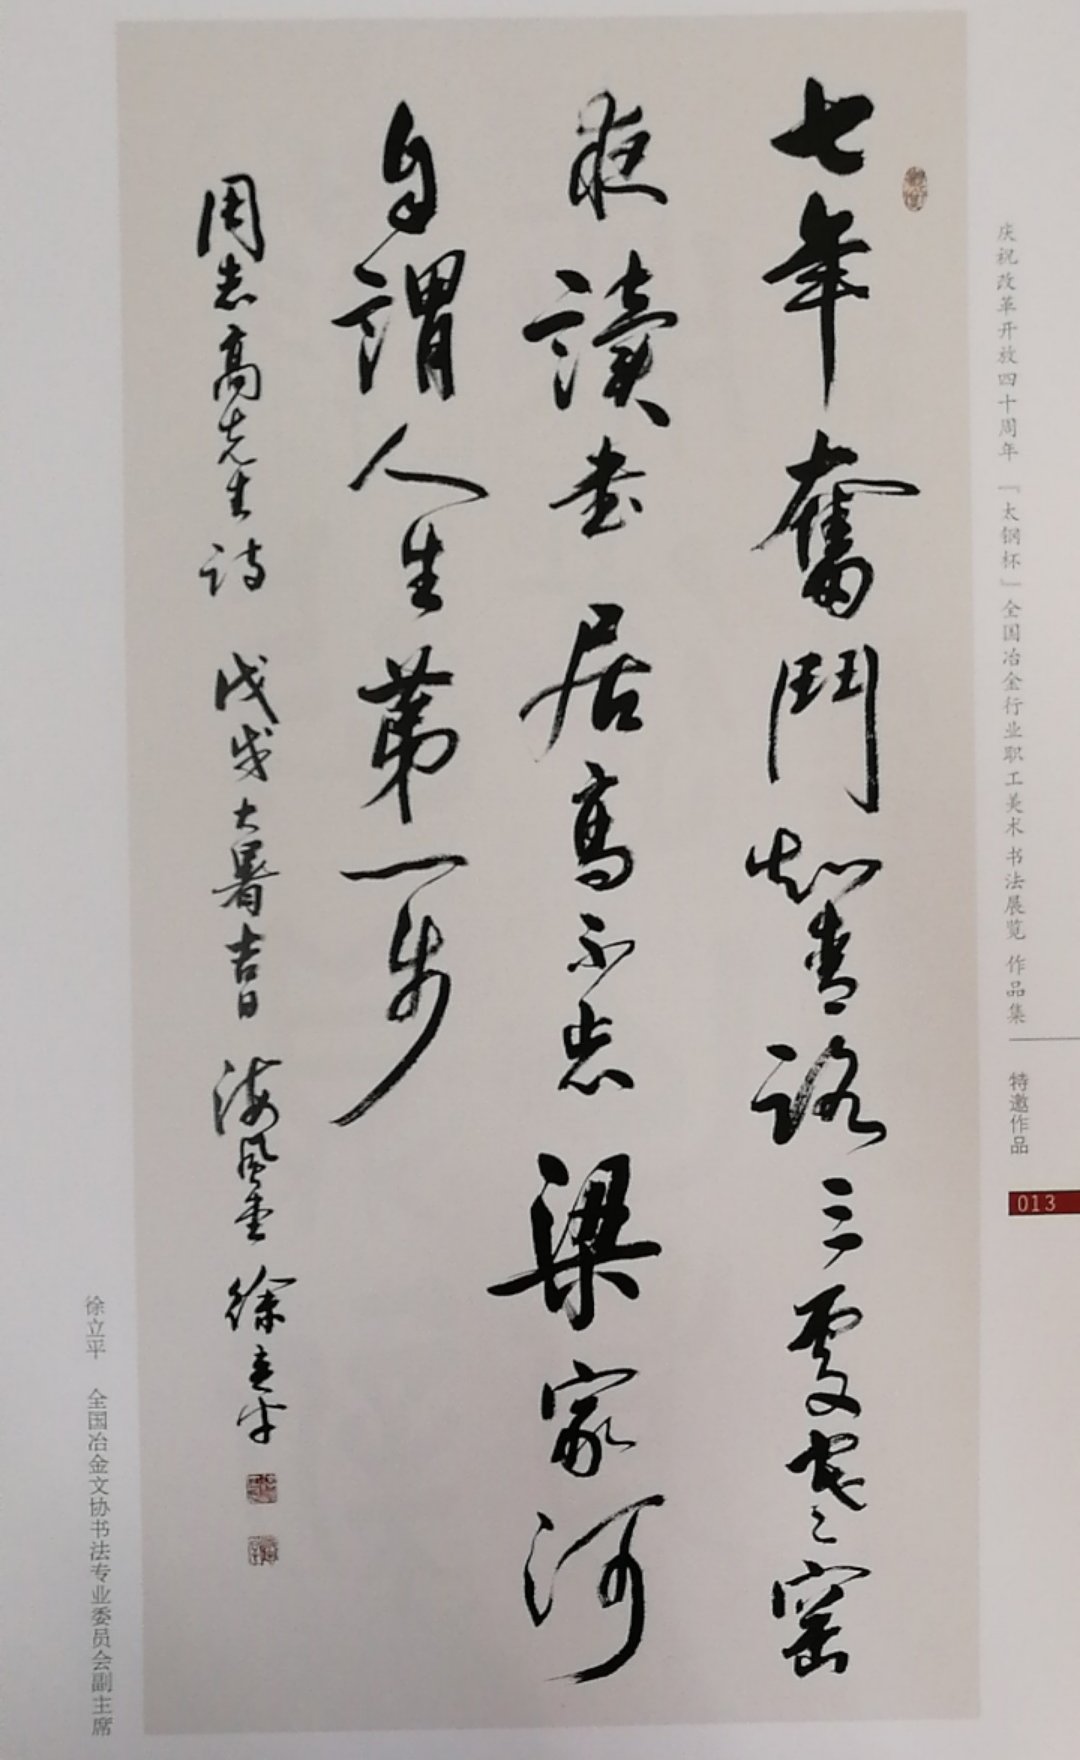 七年奮鬥知青路三更寒窑
夜讀書居高不忘梁家河
自謂人生第一步
周志高先生詩 戊戌大暑吉日 海風堂 徐立平
庆祝改革开放四十周年『太钢杯』全国冶金行业职工美术书法展览 作品集
特邀作品
013
徐立平 全国冶金文协书法专业委员会副主席